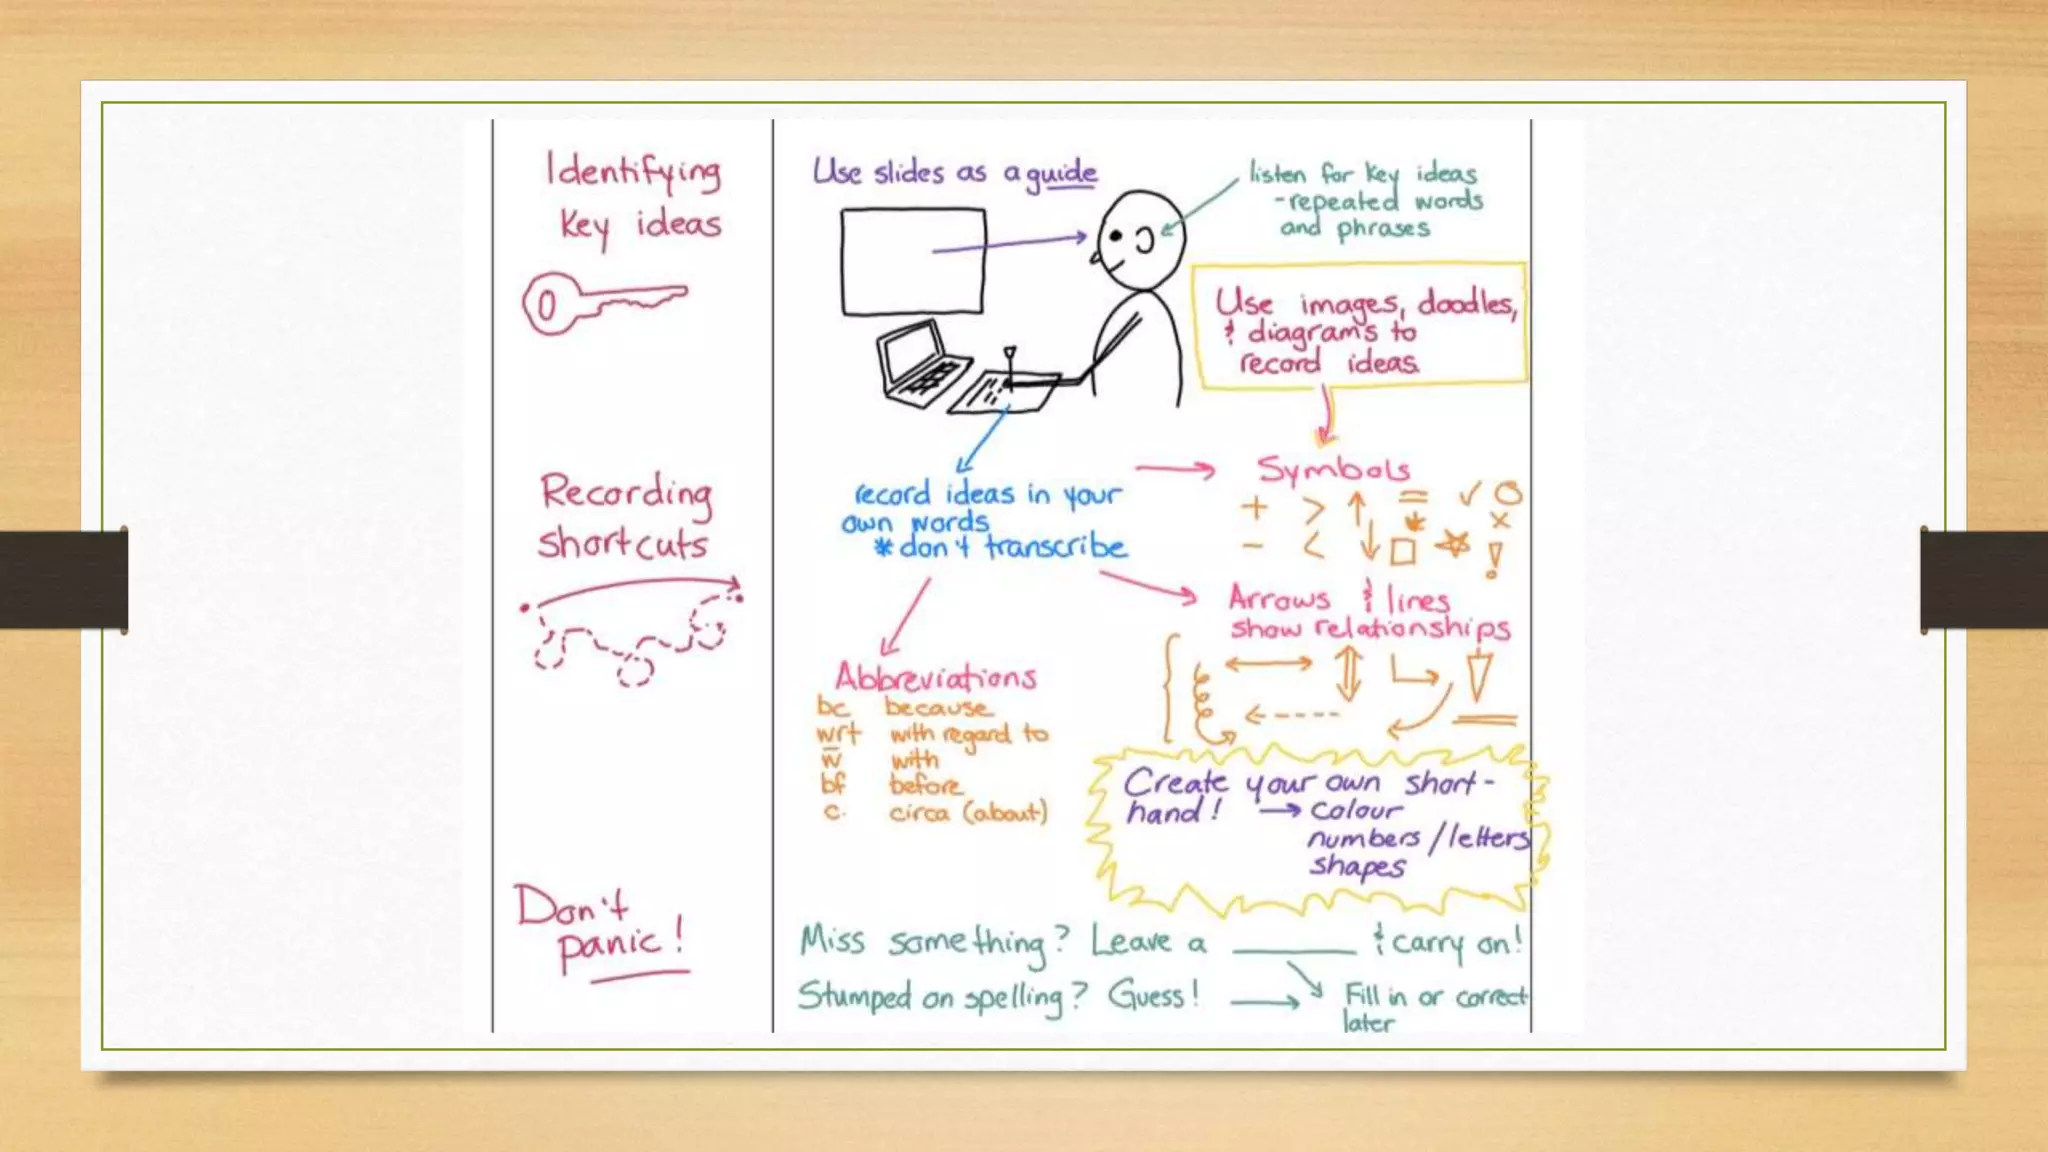 Identifying
key ideas
Use slides as a guide
listen for key ideas
- repeated words
and phrases
Use images, doodles,
& diagrams to
record ideas
Recording
shortcuts
record ideas in your
own words
* don't transcribe
Symbols
+ > ↑ = ✓ ○
* ×
− < ↓ □ ☆ !
Arrows & lines
show relationships
Abbreviations
bc because
wrt with regard to
w̅ with
bf before
c. circa (about)
Create your own short-
hand! → colour
numbers/letters
shapes
Don't
panic!
Miss something? Leave a ______ & carry on!
Stumped on spelling? Guess! → Fill in or correct
later